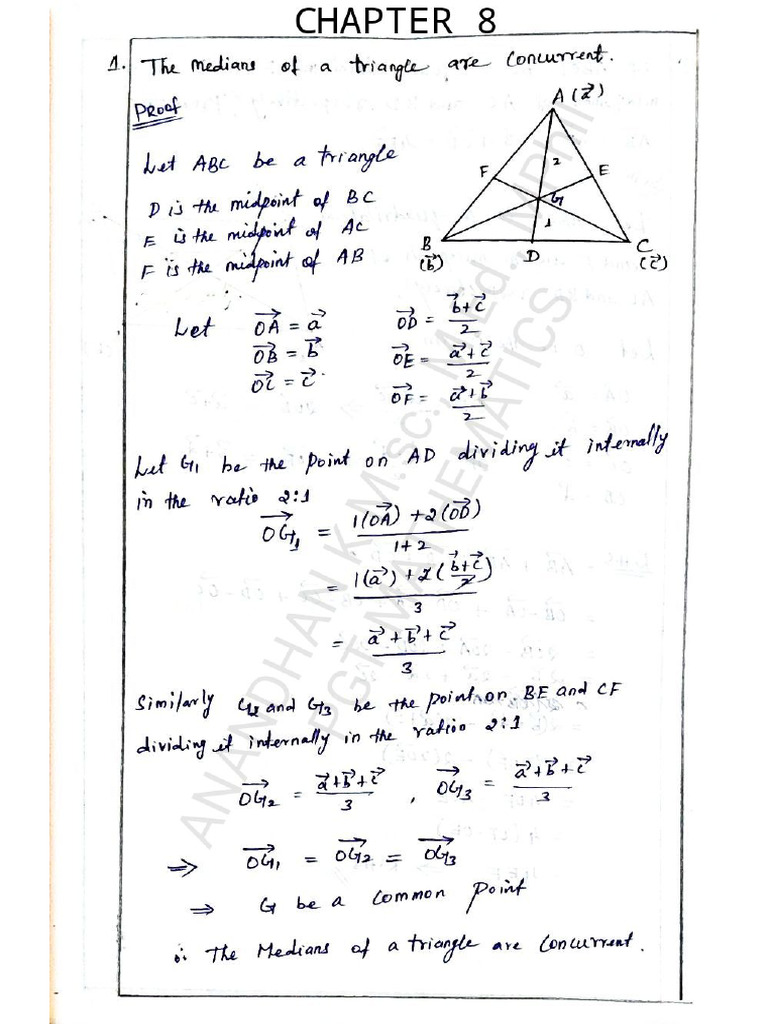 CHAPTER 8
1. The Medians of a triangle are concurrent.
Proof
A (a⃗)
F
2
E
G
1
B
D
C
(b⃗)
(c⃗)
Let ABC be a triangle
D is the midpoint of BC
E is the midpoint of AC
F is the midpoint of AB
Let OA⃗ = a⃗ OD⃗ = (b⃗+c⃗)/2
OB⃗ = b⃗ OE⃗ = (a⃗+c⃗)/2
OC⃗ = c⃗ OF⃗ = (a⃗+b⃗)/2
Let G₁ be the point on AD dividing it internally
in the ratio 2:1
OG₁⃗ = (1(OA⃗) + 2(OD⃗))/(1+2)
= (1(a⃗) + 2((b⃗+c⃗)/2))/3
= (a⃗+b⃗+c⃗)/3
Similarly G₂ and G₃ be the point on BE and CF
dividing it internally in the ratio 2:1
OG₂⃗ = (a⃗+b⃗+c⃗)/3 , OG₃⃗ = (a⃗+b⃗+c⃗)/3
⇒ OG₁⃗ = OG₂⃗ = OG₃⃗
⇒ G be a common point
∴ The Medians of a triangle are concurrent.
ANANDHAN K M.sc., M.Ed., MPhil
PGT MATHEMATICS